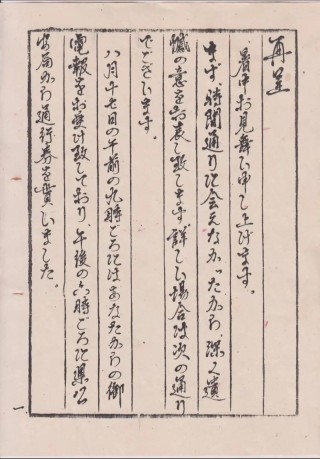 再呈
暑中お見舞い申し上げます。
まず、時間通りに会えなかったから、深く遺
憾の意を表し致します 詳しい場合は次の通り
でございます。
八月十七日の午前の九時ごろにはあなたからの御
電報をお受け致しており、午後の六時ごろに県公
安局から通行券を貰いました。
一